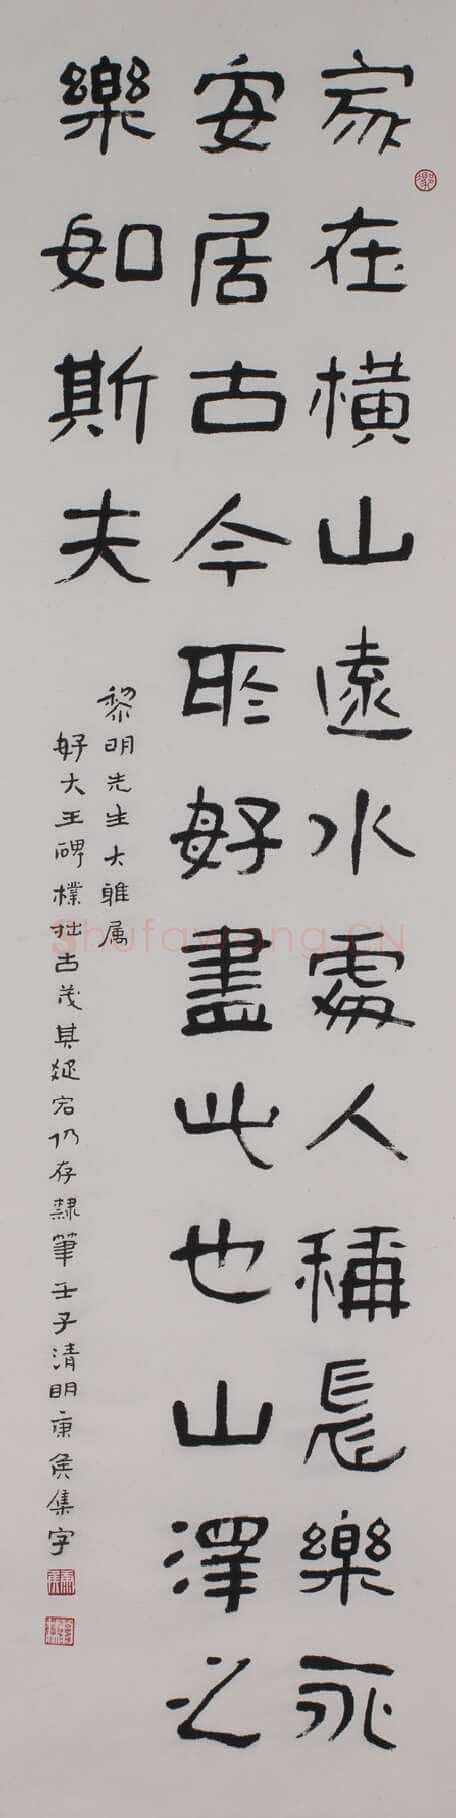 家在橫山遠水處人稱長樂永
安居古今所好盡此也山澤之
樂如斯夫
黎明先生大雅属
好大王碑樸拙古茂其宕仍存隸筆壬子清明康侯集字
Shufawang.CN